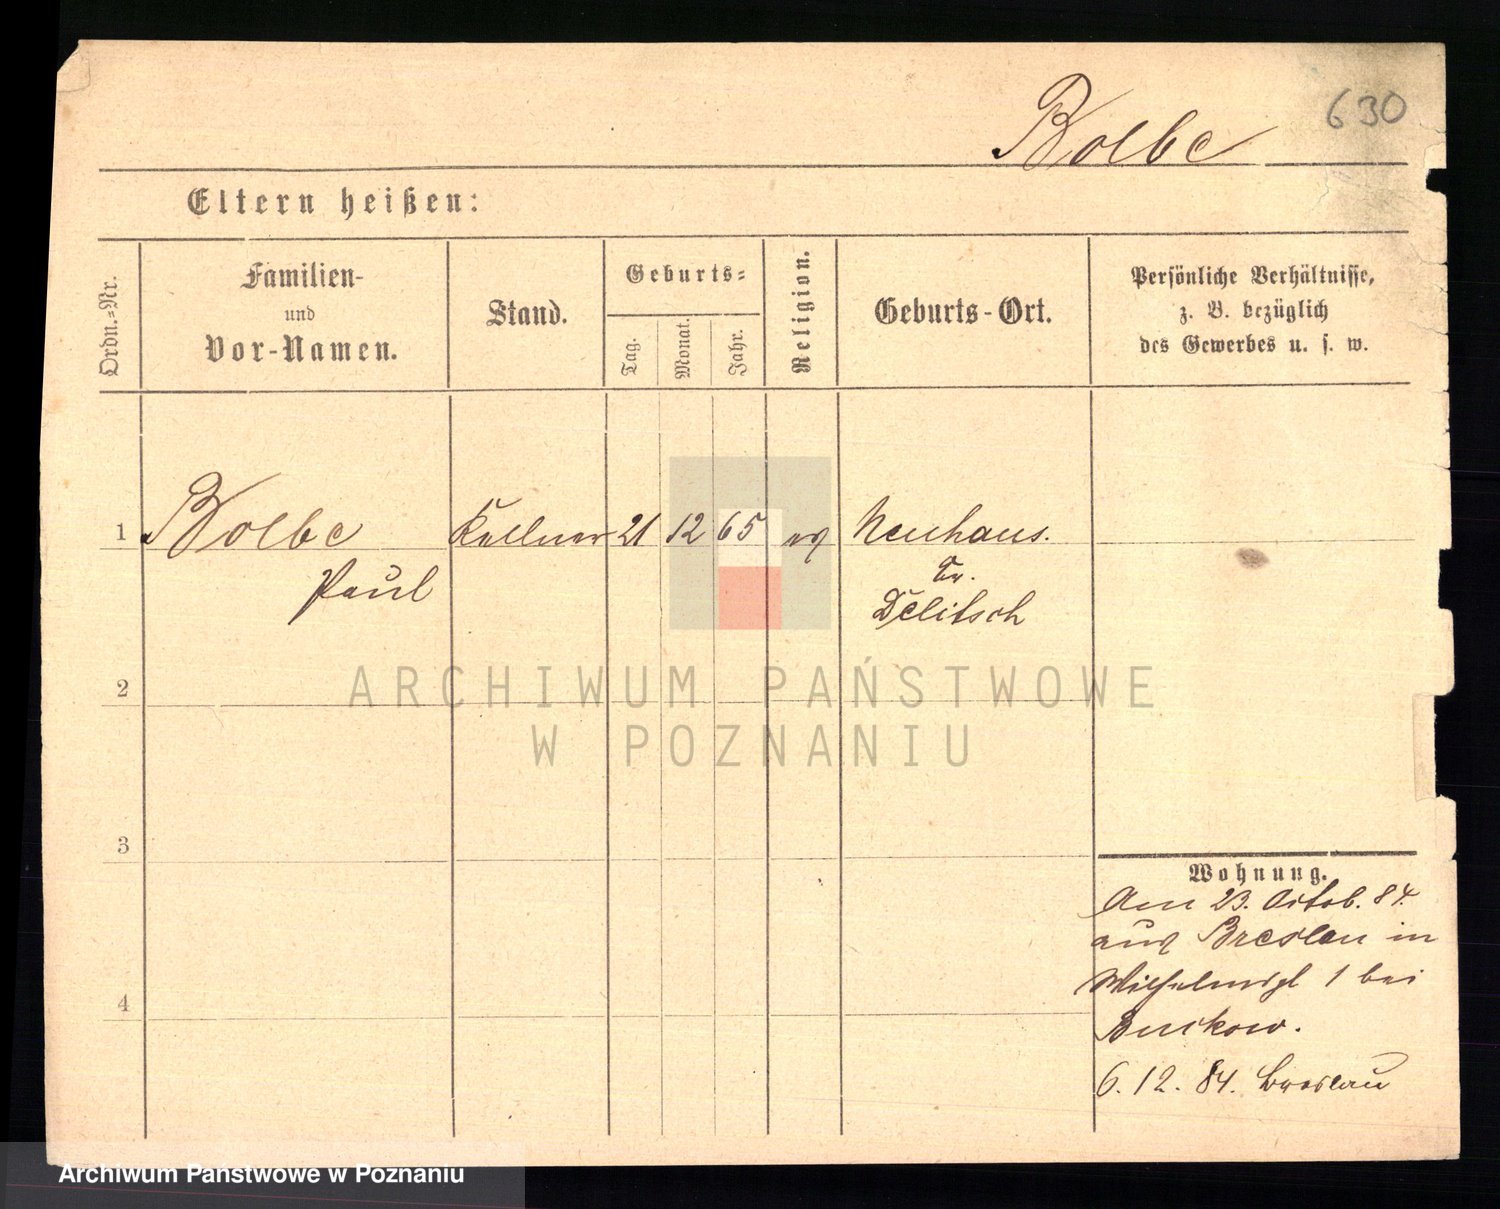 630
Bolbe
Eltern heißen:
Ordn.-Nr.
Familien-
und
Vor-Namen.
Stand.
Geburts-
Tag.
Monat.
Jahr.
Religion.
Geburts-Ort.
Persönliche Verhältnisse,
z. B. bezüglich
des Gewerbes u. s. w.
1 Bolbe Kellner 21 12 65 ev Neuhaus.
Paul
Kr.
Delitsch
2
ARCHIWUM PAŃSTWOWE
W POZNANIU
3
Wohnung.
Am 23. Octob. 84.
aus Breslau in
1 bei
4
6. 12. 84. Breslau
Archiwum Państwowe w Poznaniu